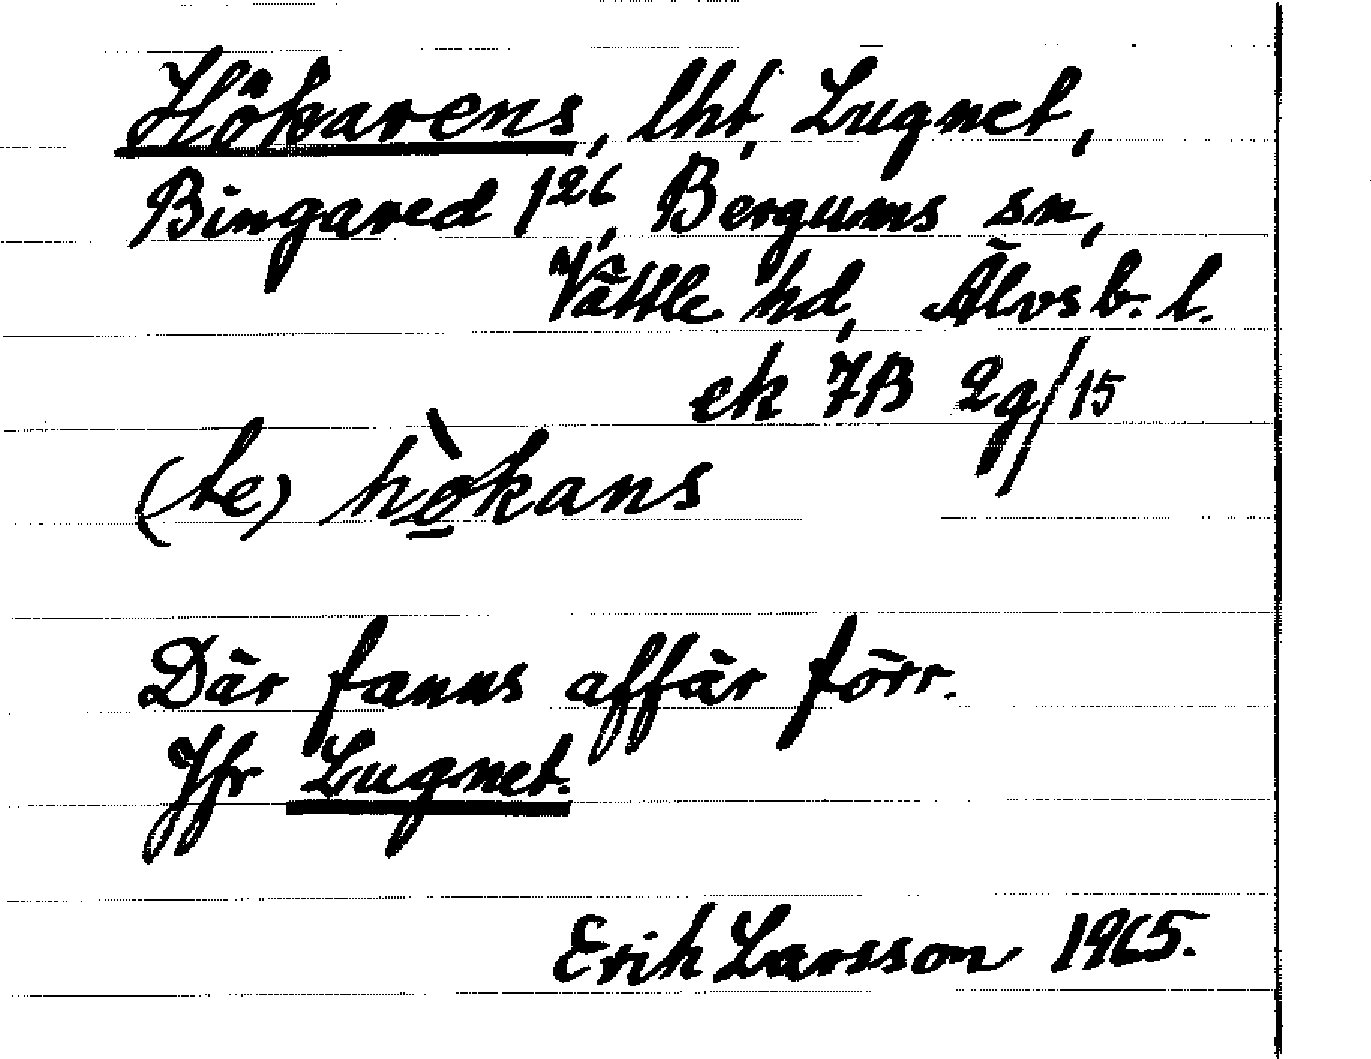 Hökarens, lht, Lugnet,
Bingared 1²⁶, Bergums sn,
Vättle hd, Älvsb. l.
ek 7B 2g/15
(te) hò̲kans
Där fanns affär förr.
Jfr Lugnet.
Erik Larsson 1965.